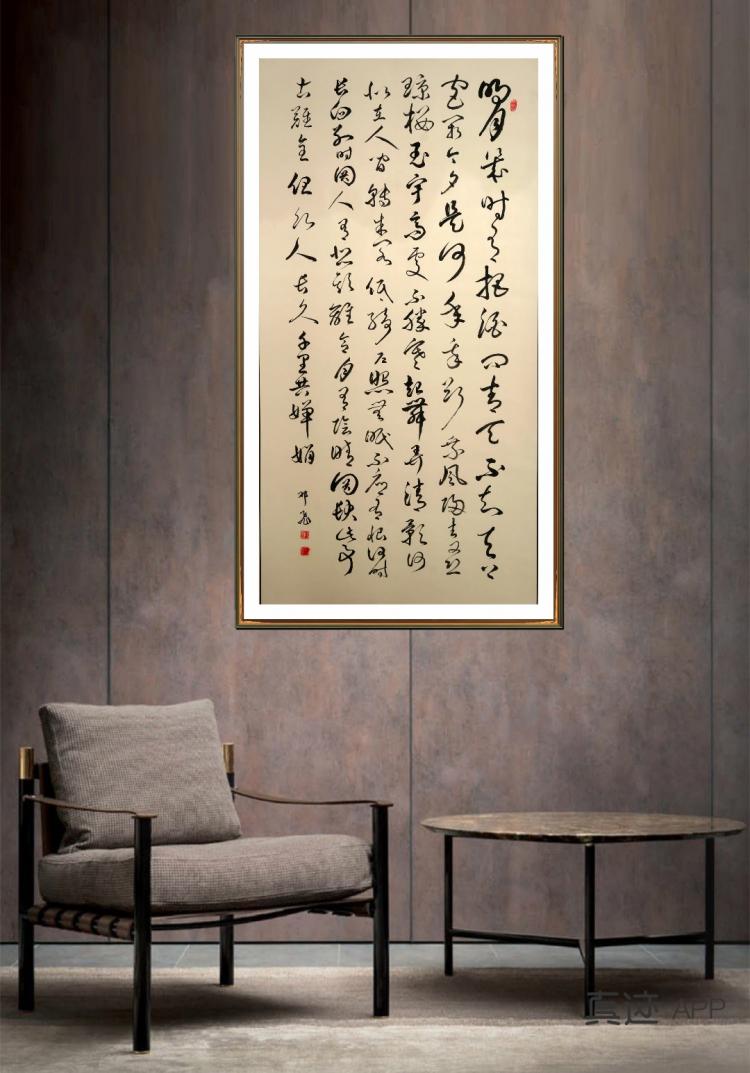 明月幾时有把酒问青天不知天上
宫阙今夕是何年我欲乘风归去又恐
琼楼玉宇高处不胜寒起舞弄清影何
似在人间轉朱阁低绮户照無眠不应有恨何时
长向别时圆人有悲欢離合月有陰晴圆缺此事
古難全但愿人长久千里共嬋娟
真迹 APP